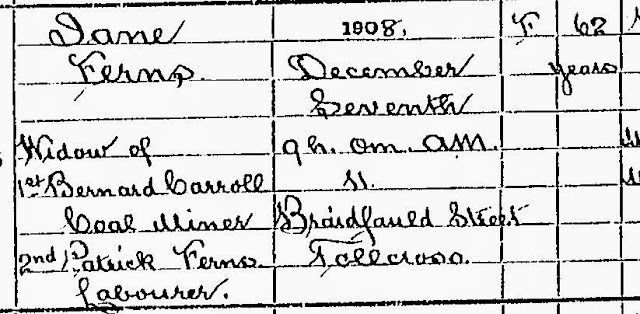 Jane
Ferns.
Widow of
1st Bernard Carroll
Coal Miner
2nd Patrick Ferns
Labourer.
1908.
December
Seventh
9 h. 0m. AM.
11.
Braidfauld Street
Tollcross.
F
62
years